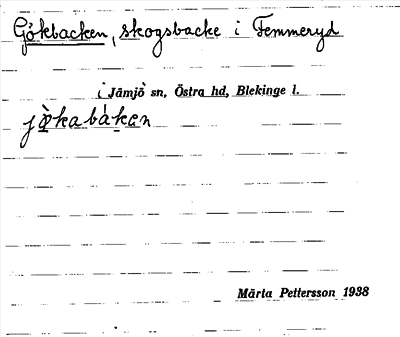 Gökbacken, skogsbacke i Femmeryd
i Jämjö sn, Östra hd, Blekinge l.
jø̀kabàken
Märta Pettersson 1938